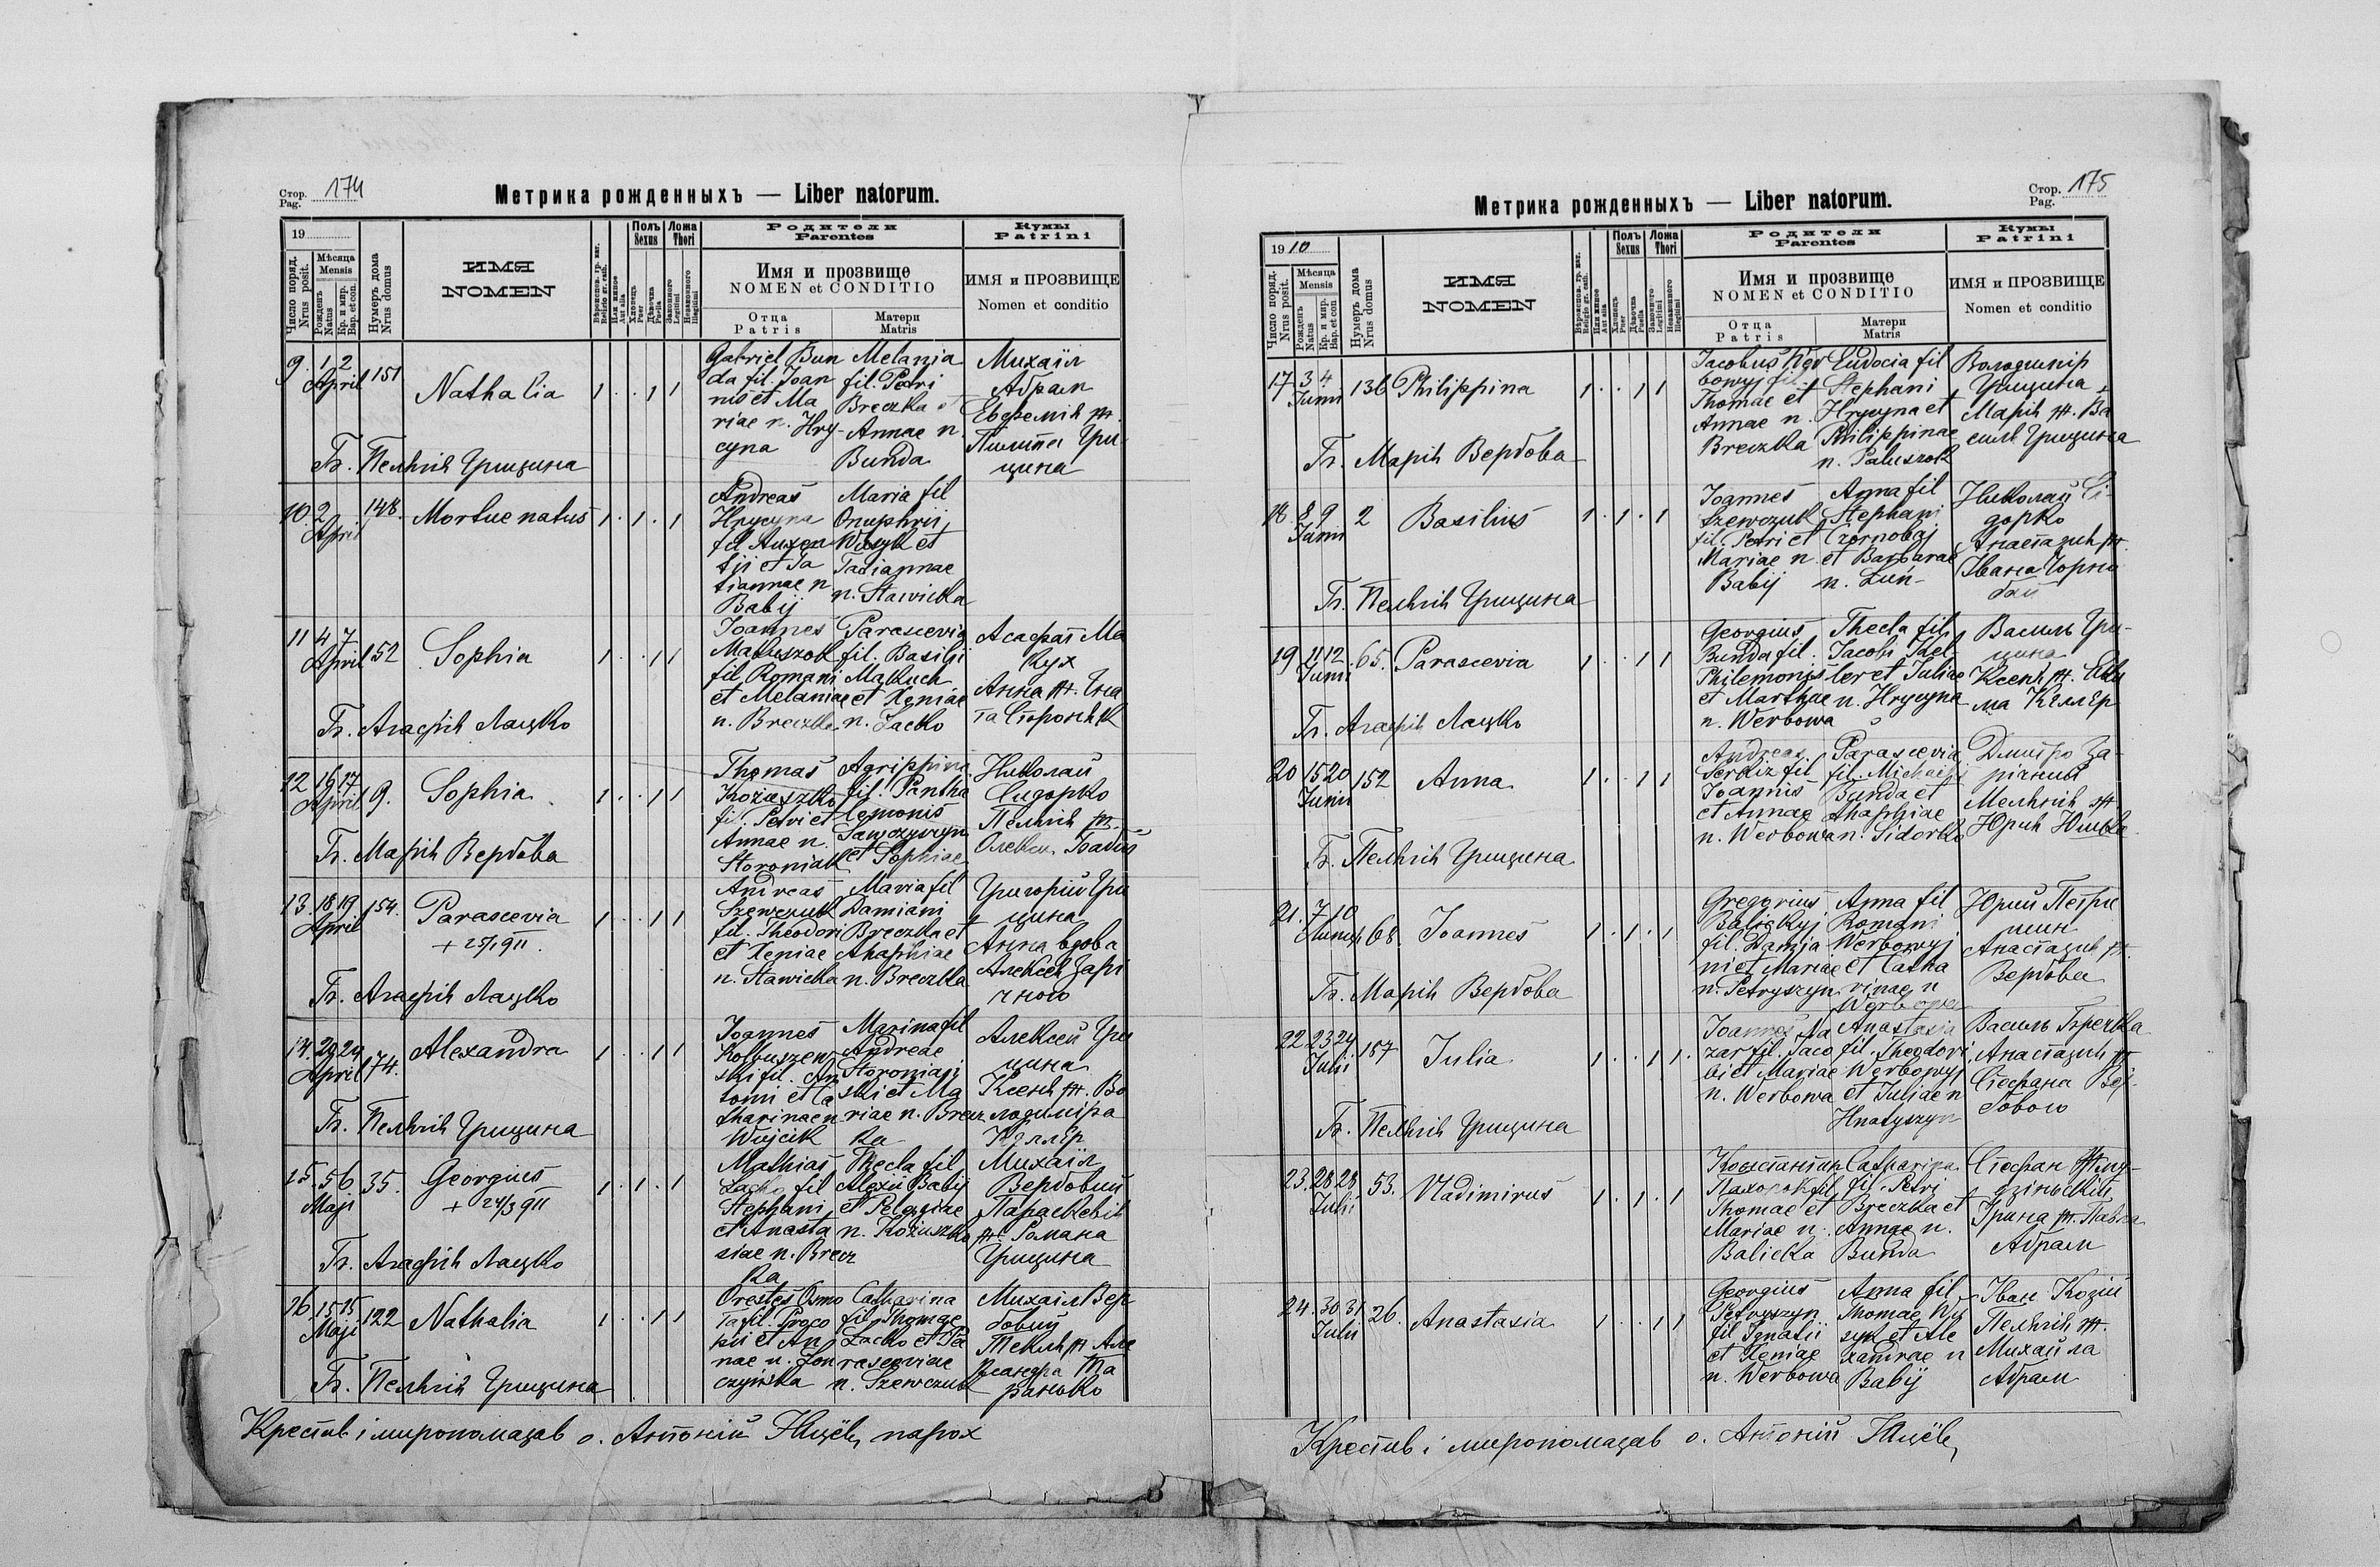 Стор. Pag. 174
Метрика рожденныхъ — Liber natorum.
19
Число поряд. Nrus posit.
Мѣсяца Mensis
Рожденъ Natus
Кр. и мир. Bap. et con.
Нумеръ дома Nrus domus
ИМЯ NOMEN
Вѣроиспов. гр. кат. Religio gr. cath.
Или инное Aut alia
Полъ Sexus
Хлопецъ Puer
Дѣвочка Puella
Ложа Thori
Законного Legitimi
Незаконного Illegitimi
Родители Parentes
Имя и прозвище
NOMEN et CONDITIO
Отца Patris
Матери Matris
Кумы Patrini
ИМЯ и ПРОЗВИЩЕ
Nomen et conditio
9. 1 2 April 151 Nathalia 1 . . 1 1
Gabriel Bun
da fil. Joan
nis et Ma
riae n. Hry-
cyna
Melania
fil. Petri
Breczka et
Annae n.
Bunda
Михаіл
Абрам
Евфемія ж.
Пилипа Гри
цина
Гр. Пелагія Грицина
10. 2 April 148. Mortue natus 1 . 1 . 1
Andreas
Hrycyna
fil. Auxen
tji et Ta
tiannae n
Babij
Maria fil
Onuphrii
Wasyk et
Tatiannae
n. Stawicka
11 4 7 April 152 Sophia 1 . . 1 1
Joannes
Matuszok
fil Romani
et Melaniae
n. Breczka
Parascevia
fil. Basilii
Makuch
et Xeniae
n. Lacko
Асафат Ма
кух
Анна ж. Гна
та Сторожук
Гр. Агафія Лацко
12 16 17 April 9. Sophia 1 . . 1 1
Thomas
Kożuszko
fil. Petri et
Annae n.
Storoniak
Agrippina
fil. Pantha
lemonis
Sawczyszyn
et Sophiae
Николай
Сидорко
Пелагія ж.
Олекси Бабій
Гр. Марія Вербова
13. 18 19 April 154. Parascevia 1 . . 1 1
+ 25/1 911.
Andreas
Szewczuk
fil. Theodori
et Xeniae
n. Stawicka
Maria fil
Damiani
Breczka et
Ahaphiae
n. Breczka
Григорій Гри
цина
Анна вдова
Алексея Зарі
чного
Гр. Агафія Лацко
14. 24 24 April 74. Alexandra 1 . . 1 1
Joannes
Kolbuszew
ski fil. An
tonii et Ca
tharinae n
Wujcik
Marina fil
Andreae
Storoniań
ski et Ma
riae n. Brecz
ka
Алексей Гри
цина
Ксеня ж. Во
лодиміра
Келлір
Гр. Пелагія Грицина
15. 5 6 Maji 35. Georgius 1 . 1 . 1
+ 24/3 911
Mathias
Lacko fil
Stephani
et Anasta
siae n. Brecz
ka
Thecla fil
Alexii Babij
et Pelagiae
n. Kożuszko
Михаіл
Вербовий
Параскевія
ж. Романа
Грицина
Гр. Агафія Лацко
16 15 15 Maji 122 Nathalia 1 . . 1 1
Orestes Osmo
Ta fil. Proco
pii et An
nae n. Łon
czyńska
Catharina
fil. Thomae
Lacko et Pa
rasceviae
n. Szewczuk
Михаіл Вер
бовий
Текля ж. Але
ксандра Та
ранько
Гр. Пелагія Грицина
Крестив і миропомазав о. Антоній парох
Стор. Pag. 175
Метрика рожденныхъ — Liber natorum.
1910
Число поряд. Nrus posit.
Мѣсяца Mensis
Рожденъ Natus
Кр. и мир. Bap. et con
Нумеръ дома Nrus domus
ИМЯ NOMEN
Вѣроиспов. гр. кат. Religio gr. cath.
Или инное Aut alia
Полъ Sexus
Хлопецъ Puer
Дѣвочка Puella
Ложа Thori
Законного Legitimi
Незаконного Illegitimi
Родители Parentes
Имя и прозвище
NOMEN et CONDITIO
Отца Patris
Матери Matris
Кумы Patrini
ИМЯ и ПРОЗВИЩЕ
Nomen et conditio
17 3 4 Junii 136 Philippina 1 . . 1 1
Jacobus Wer
bowyj fil.
Thomae et
Annae n.
Breczka
Eudocia fil
Stephani
Hrycyna et
Philippinae
n. Paluszok
Володимір
Грицина
Марія ж. Ва
силя Грицина
Гр. Марія Вербова
18 8 9 Junii 2 Basilius 1 . 1 . 1
Joannes
Szewczuk
fil. Petri et
Mariae n
Babij
Anna fil
Stephani
Czornobaj
et Barbarae
n. Łuń-
Николай Сі-
дорко
Анастазія ж.
Івана Чорно
бай
Гр. Пелагія Грицина
19 11 12 Junii 65. Parascevia 1 . . 1 1
Georgius
Bunda fil.
Philemonis
et Marthae
n. Werbowa
Thecla fil
Jacobi Kel
ler et Juliae
n. Hrycyna
Василь Гри-
цина
Ксеня ж.
ма Келлер
Гр. Агафія Лацко
20 15 20 Junii 152 Anna 1 . . 1 1
Andreas
Serkiz fil
Joannis
et Annae
n. Werbowa
Parascevia
fil. Michaelis
Bunda et
Ahaphiae
n. Sidorko
Дмитро За-
річний
Мелянія ж.
Юрія
Гр. Пелагія Грицина
21. 7 10 68 Joannes 1 . 1 . 1
Gregorius
Balickyj
fil. Damja
ni et Mariae
n. Petryszyn
Anna fil
Romani
Werbowyj
et Catha
rinae n
Werbowa
Юрий Петри
шин
Анастазия ж.
Вербова
Гр. Марія Вербова
22 23 24 Julii 187 Julia 1 . . 1 1.
Joannes Na
zar fil. Jaco
bi et Mariae
n. Werbowa
Anastasia
fil. Theodori
Werbowyj
et Juliae n
Hnatyszyn
Василь Гречка
Анастазия ж
Стефана Вер-
бовою
Гр. Пелагія Грицина
23. 28 28 Julii 53. Vladimirus 1 . 1 . 1
Константин
Пахорок fil.
Thomae et
Mariae n.
Balicka
Catharina
fil. Petri
Breczka et
Annae n.
Bunda
Стефан
Ірина ж. Павла
Абрам
24. 30 31 Julii 26. Anastasia 1 . . 1 1
Georgius
Petryszyn
fil Ignatii
et Xeniae
n. Werbowa
Anna fil
Thomae Wa
syk et Ale
xandrae n
Babij
Іван Козій
Пелагія ж.
Михайла
Абрам
Крестив і миропомазав о. Антоній